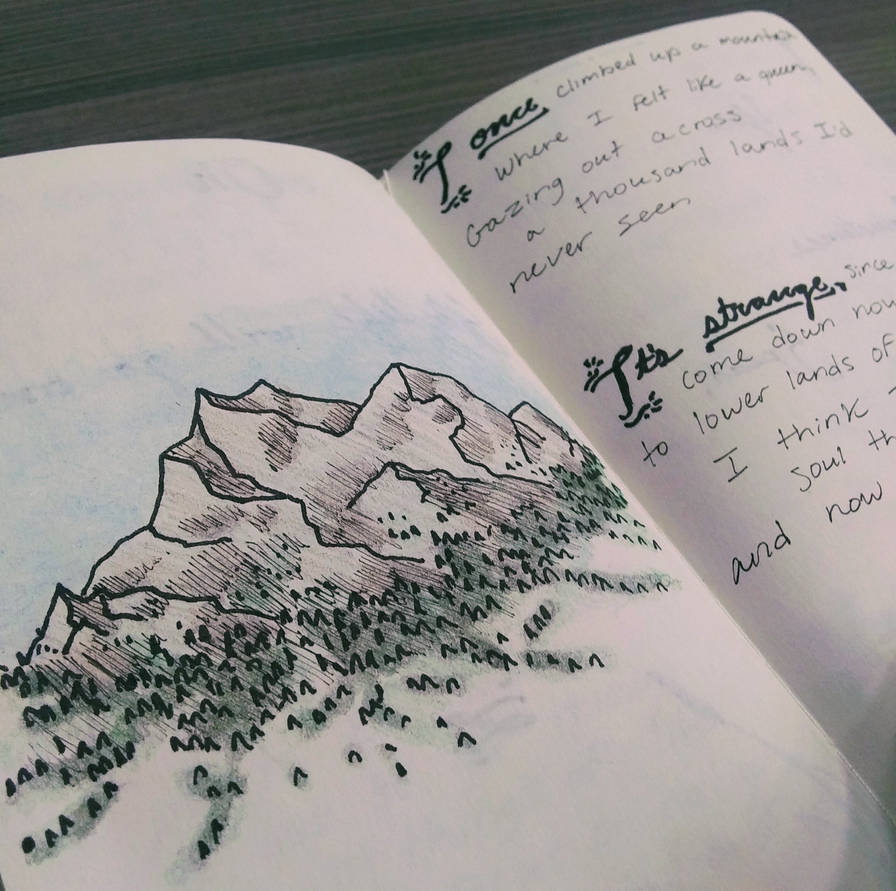 I once climbed up a mountain
where I felt like a queen,
Gazing out across
a thousand lands I'd
never seen
It's strange, since
come down now
to lower lands of
I think
soul
and now